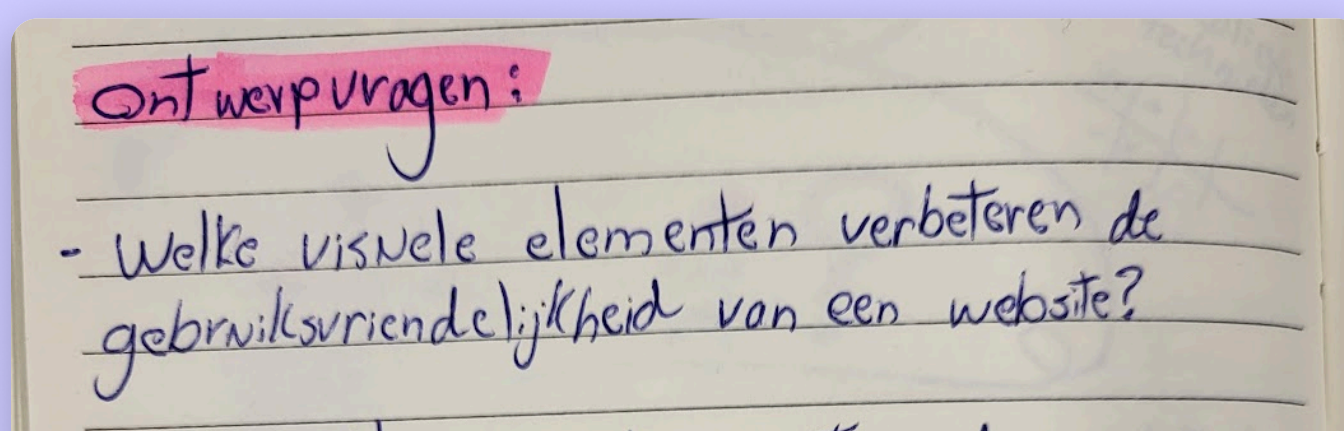 Ontwerpvragen:
- Welke visuele elementen verbeteren de
gebruiksvriendelijkheid van een website?